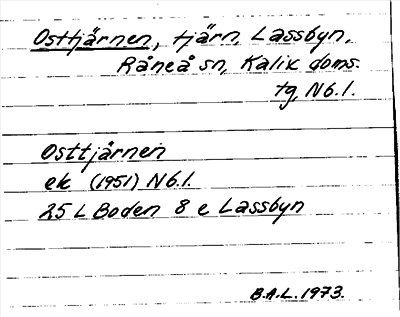 Osttjärnen, tjärn, Lassbyn,
Råneå sn, Kalix doms.
tg, N6.1.
Osttjärnen
ek (1951) N6.1.
25 L Boden 8 e Lassbyn
B.A.L. 1973.